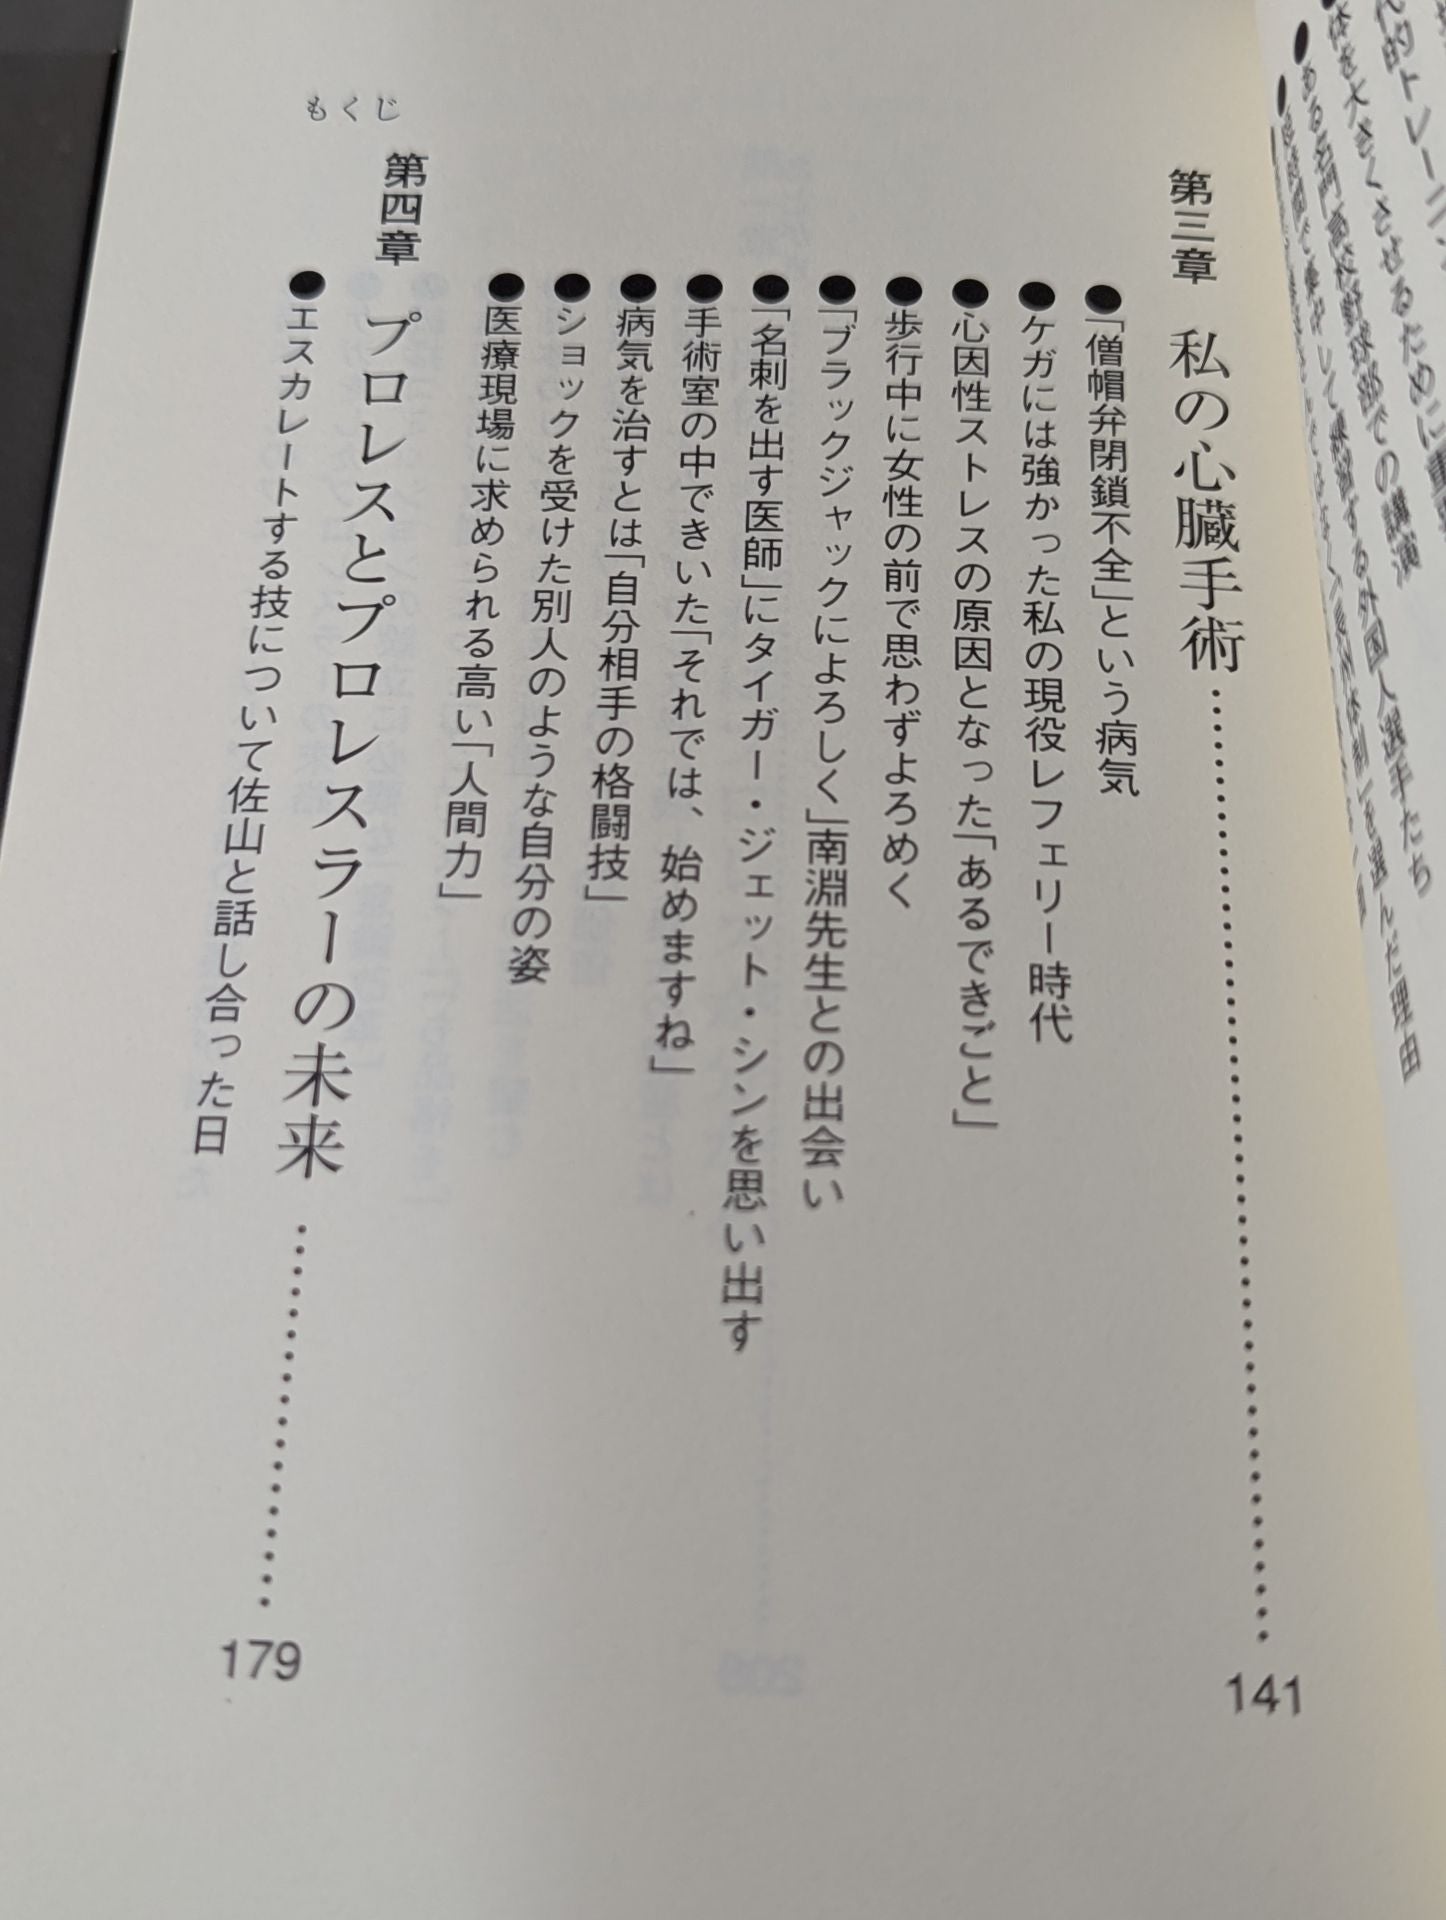 第三章　私の心臓手術……………………………141
●「僧帽弁閉鎖不全」という病気
●ケガには強かった私の現役レフェリー時代
●心因性ストレスの原因となった「あるできごと」
●歩行中に女性の前で思わずよろめく
●「ブラックジャックによろしく」南淵先生との出会い
●「名刺を出す医師」にタイガー・ジェット・シンを思い出す
●手術室の中できいた「それでは、始めますね」
●病気を治すとは「自分相手の格闘技」
●ショックを受けた別人のような自分の姿
●医療現場に求められる高い「人間力」
第四章　プロレスとプロレスラーの未来……………179
●エスカレートする技について佐山と話し合った日
もくじ